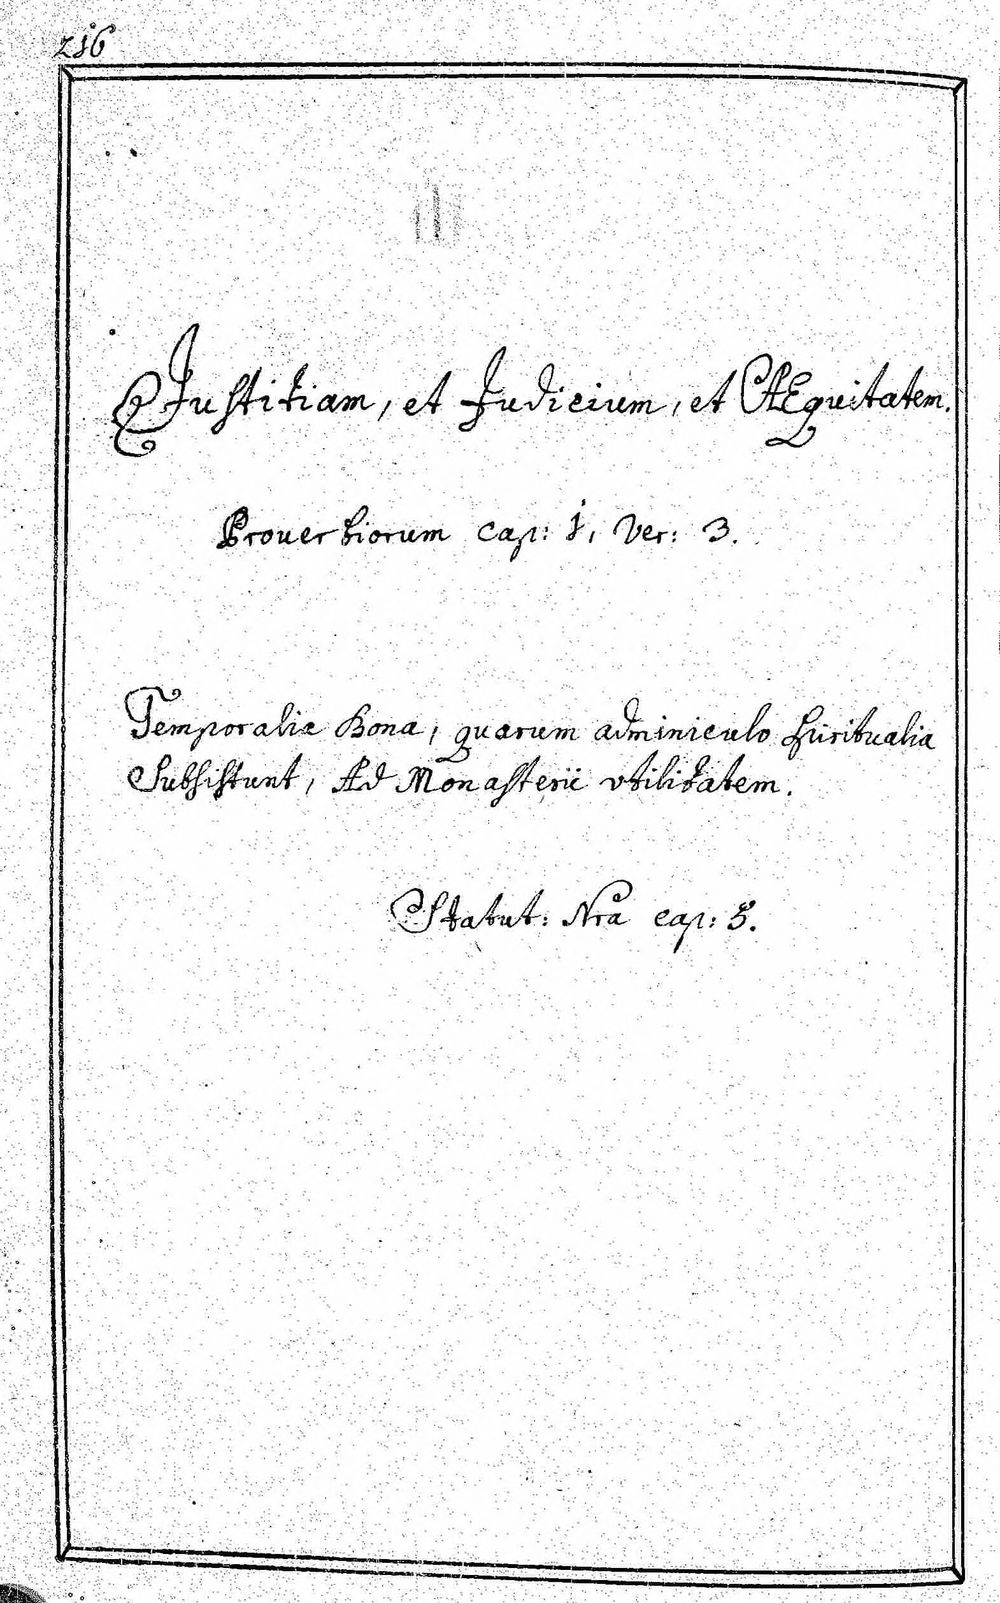 216
Justitiam, et Judicium, et AEquitatem.
Prouerbiorum cap: 1, Ver: 3.
Temporalia Bona, quarum adminiculo spiritualia
Subsistunt, Ad Monasterii vtilitatem.
Statut: Nra cap: 5.